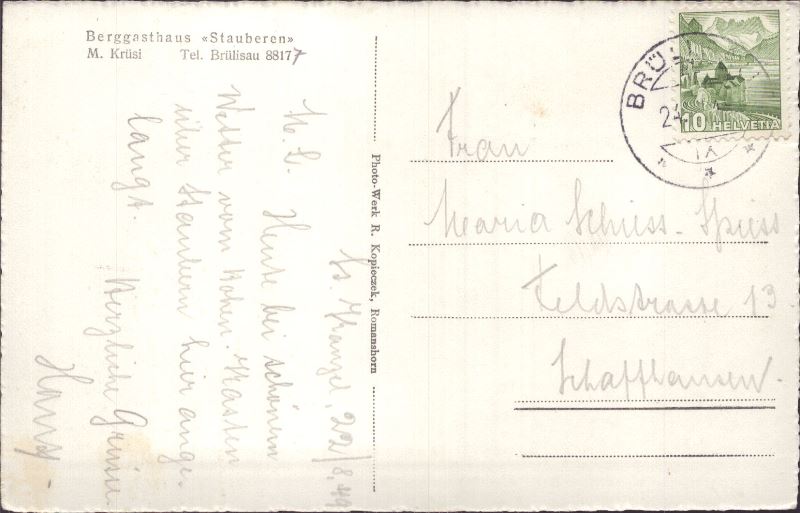 Berggasthaus «Stauberen»
M. Krüsi Tel. Brülisau 88177
22/8.49
M. L. Heute bei schönem
Wetter vom Hohen-Kasten
über Staubern hier ange-
langt.
Herzliche Grüsse
Hans
Photo-Werk R. Kopieczek, Romanshorn
BRÜ
10 HELVETIA
Frau
Maria Schiess-Spiess
Feldstrasse 13
Schaffhausen.